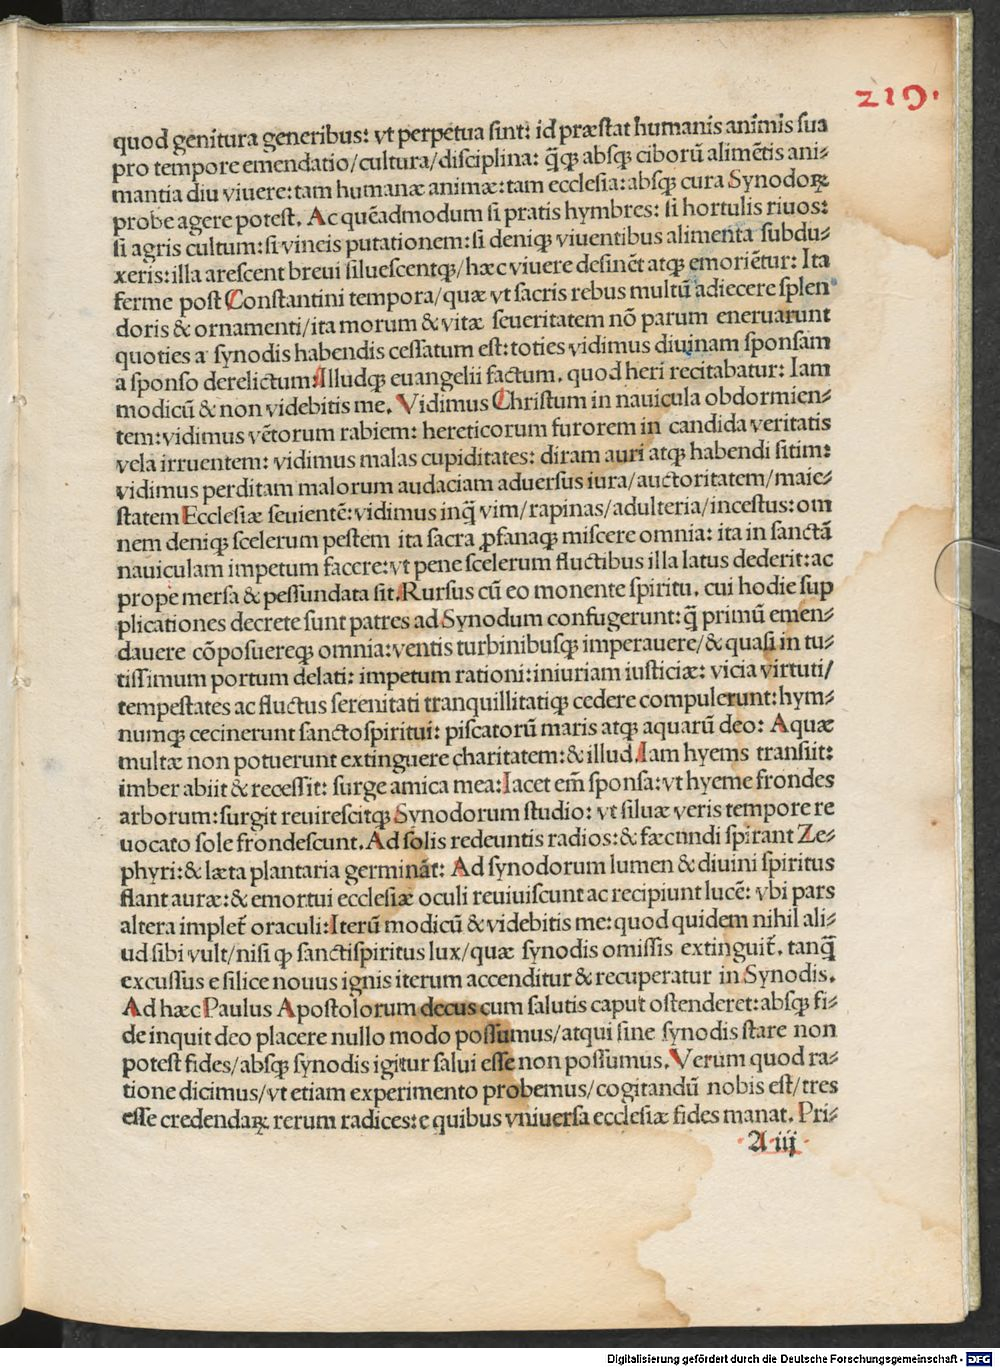 219.
quod genitura generibus: vt perpetua sint: id præstat humanis animis sua
pro tempore emendatio/cultura/disciplina: q̃qꝫ absqꝫ ciborũ alimẽtis ani⸗
mantia diu viuere: tam humanæ animæ: tam ecclesia: absqꝫ cura Synodoꝝ
probe agere potest. Ac quẽadmodum si pratis hymbres: si hortulis riuos:
si agris cultum: si vineis putationem: si deniqꝫ viuentibus alimenta subdu⸗
xeris: illa arescent breui siluescentqꝫ/hæc viuere desinẽt atqꝫ emoriẽtur: Ita
ferme post Constantini tempora/quæ vt sacris rebus multũ adiecere splen
doris & ornamenti/ita morum & vitæ seueritatem nõ parum eneruarunt
quoties a synodis habendis cessatum est: toties vidimus diuinam sponsam
a sponso derelictum: Illudqꝫ euangelii factum. quod heri recitabatur: Iam
modicũ & non videbitis me. Vidimus Christum in nauicula obdormien⸗
tem: vidimus vẽtorum rabiem: hereticorum furorem in candida veritatis
vela irruentem: vidimus malas cupiditates: diram auri atqꝫ habendi sitim:
vidimus perditam malorum audaciam aduersus iura/auctoritatem/maie⸗
statem Ecclesiæ seuientẽ: vidimus inq̃ vim/rapinas/adulteria/incestus: om
nem deniqꝫ scelerum pestem ita sacra ꝓfanaqꝫ miscere omnia: ita in sanctã
nauiculam impetum facere: vt pene scelerum fluctibus illa latus dederit: ac
prope mersa & pessundata sit. Rursus cũ eo monente spiritu. cui hodie sup
plicationes decrete sunt patres ad Synodum confugerunt: q̃ primũ emen⸗
dauere cõposuereqꝫ omnia: ventis turbinibusqꝫ imperauere/& quasi in tu⸗
tissimum portum delati: impetum rationi: iniuriam iusticiæ: vicia virtuti/
tempestates ac fluctus serenitati tranquillitatiqꝫ cedere compulerunt: hym⸗
numqꝫ cecinerunt sanctospiritui: piscatorũ maris atqꝫ aquarũ deo: Aquæ
multæ non potuerunt extinguere charitatem: & illud. Iam hyems transiit:
imber abiit & recessit: surge amica mea: Iacet em̃ sponsa: vt hyeme frondes
arborum: surgit reuirescitqꝫ Synodorum studio: vt siluæ veris tempore re
uocato sole frondescunt. Ad solis redeuntis radios: & fæcundi spirant Ze⸗
phyri: & læta plantaria germinãt: Ad synodorum lumen & diuini spiritus
flant auræ: & emortui ecclesiæ oculi reuiuiscunt ac recipiunt lucẽ: vbi pars
altera implet̃ oraculi: Iterũ modicũ & videbitis me: quod quidem nihil ali⸗
ud sibi vult/nisi ꝙ sanctispiritus lux/quæ synodis omissis extinguit̃. tanq̃
excussus e silice nouus ignis iterum accenditur & recuperatur in Synodis.
Ad hæc Paulus Apostolorum decus cum salutis caput ostenderet: absqꝫ fi⸗
de inquit deo placere nullo modo possumus/atqui sine synodis stare non
potest fides/absqꝫ synodis igitur salui esse non possumus. Verum quod ra⸗
tione dicimus/vt etiam experimento probemus/cogitandũ nobis est/tres
esse credendaꝝ rerum radices: e quibus vniuersa ecclesiæ fides manat. Pri⸗
A iij
Digitalisierung gefördert durch die Deutsche Forschungsgemeinschaft - DFG